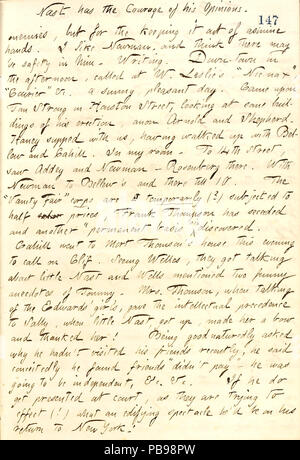 Nast has the Courage of his Opinions.
147
ennuies, but for the keeping it out of asinine
hands. I like Newman, and think there may
be safety in him. Writing. Down-town in
the afternoon, called at W. Leslie's "Nic-nax"
"Courier" &c. a sunny, pleasant day. Came upon
Jim Strong in Houston Street, looking at some buil-
dings of his erection anon Arnold and Shepherd.
Haney supped with us, having walked up with Bel-
lew and Cahill. In my room. To 14th Street,
saw Addey and Newman. Rosenberg there. With
Newman to Bellew's and there till 10. The
"Vanity Fair" corps are temporarily (?) subjected to
half prices. Frank Thompson has seceded
and another "permanent basis" discovered.
Cahill went to Mort Thomson's house this evening
to call on Clif. Seeing Welles, they got talking
about little Nast and Wells mentioned two funny
anecdotes of Tommy. Mrs. Thomson, when talking
of the Edwards' girls, gave the intellectual precedence
to Sally, when little Nast got up, made her a bow
and thanked her! Being good-naturedly asked
why he hadn't visited his friends recently, he said
conceitedly he found friends didn't pay - he was
going to be independent, &c. &c. If he do
get presented at court, as they are trying to
effect (!) what an edifying spectacle he'd be on his
return to New York.
PB98PW